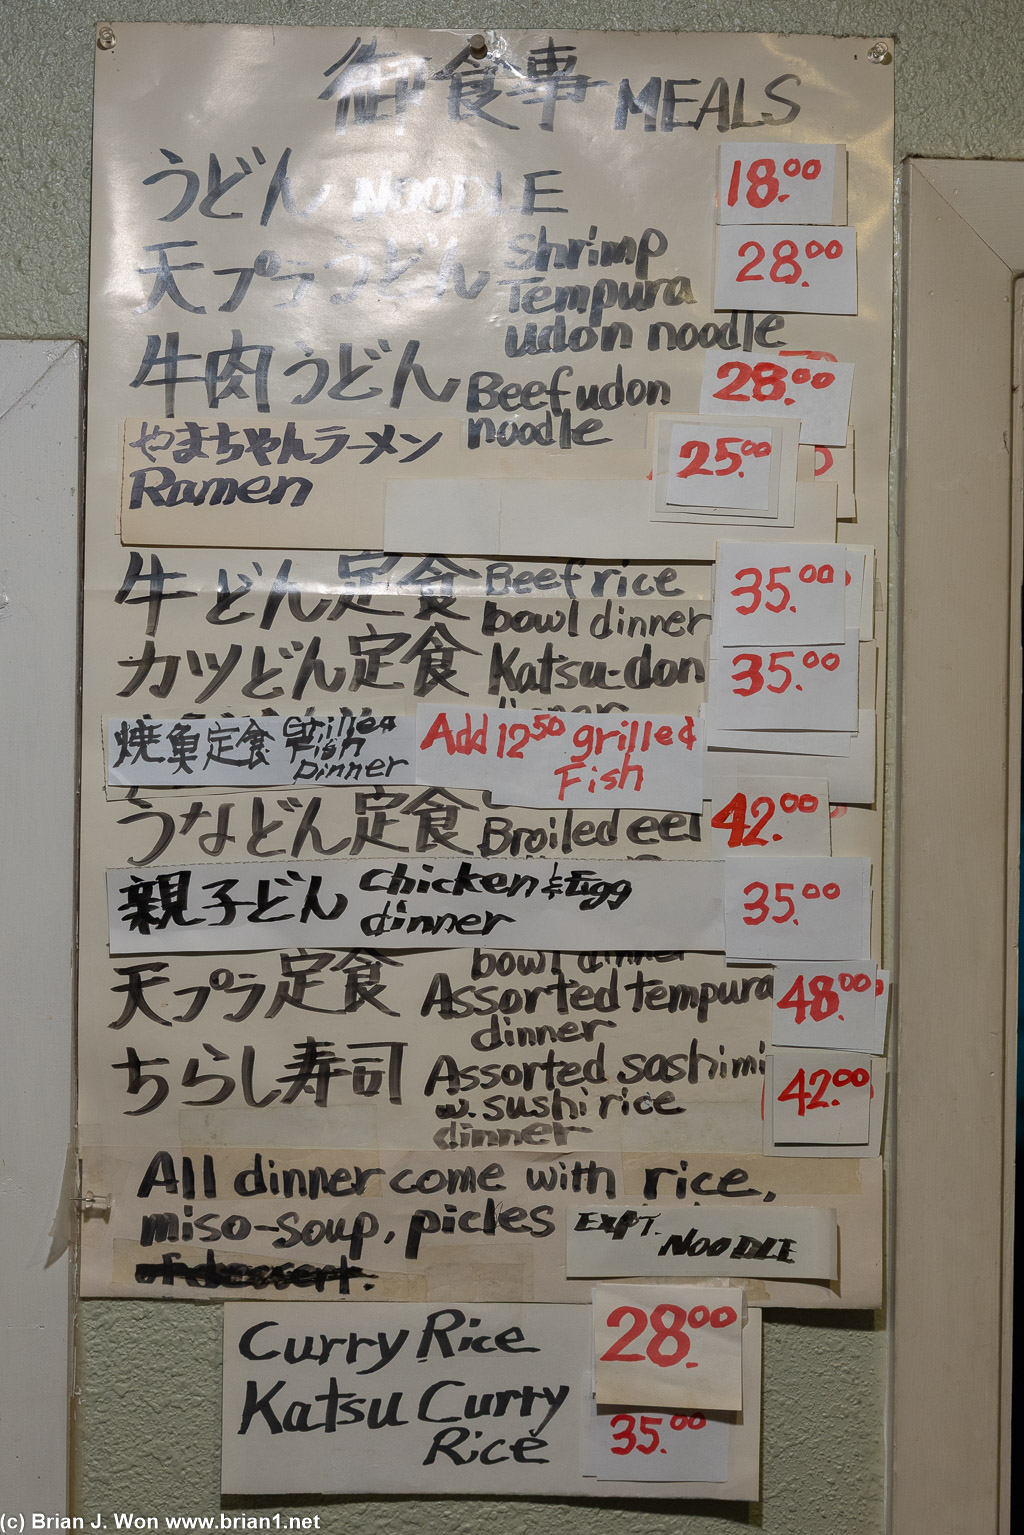 御食事 MEALS
うどん NOODLE 18.00
天プラうどん shrimp Tempura udon noodle 28.00
牛肉うどん Beef udon noodle 28.00
やまちゃんラーメン 25.00
Ramen
牛どん定食 Beef rice bowl dinner 35.00
カツどん定食 Katsu-don 35.00
焼魚定食 Grilled Fish Dinner Add 12.50 grilled Fish
うなどん定食 Broiled eel 42.00
親子どん Chicken & Egg dinner 35.00
bowl dinner
天プラ定食 Assorted tempura dinner 48.00
ちらし寿司 Assorted sashimi w. sushi rice dinner 42.00
All dinner come with rice,
miso-soup, picles EXPT. NOODLE
of dessert.
Curry Rice 28.00
Katsu Curry Rice 35.00
(c) Brian J. Won www.brian1.net